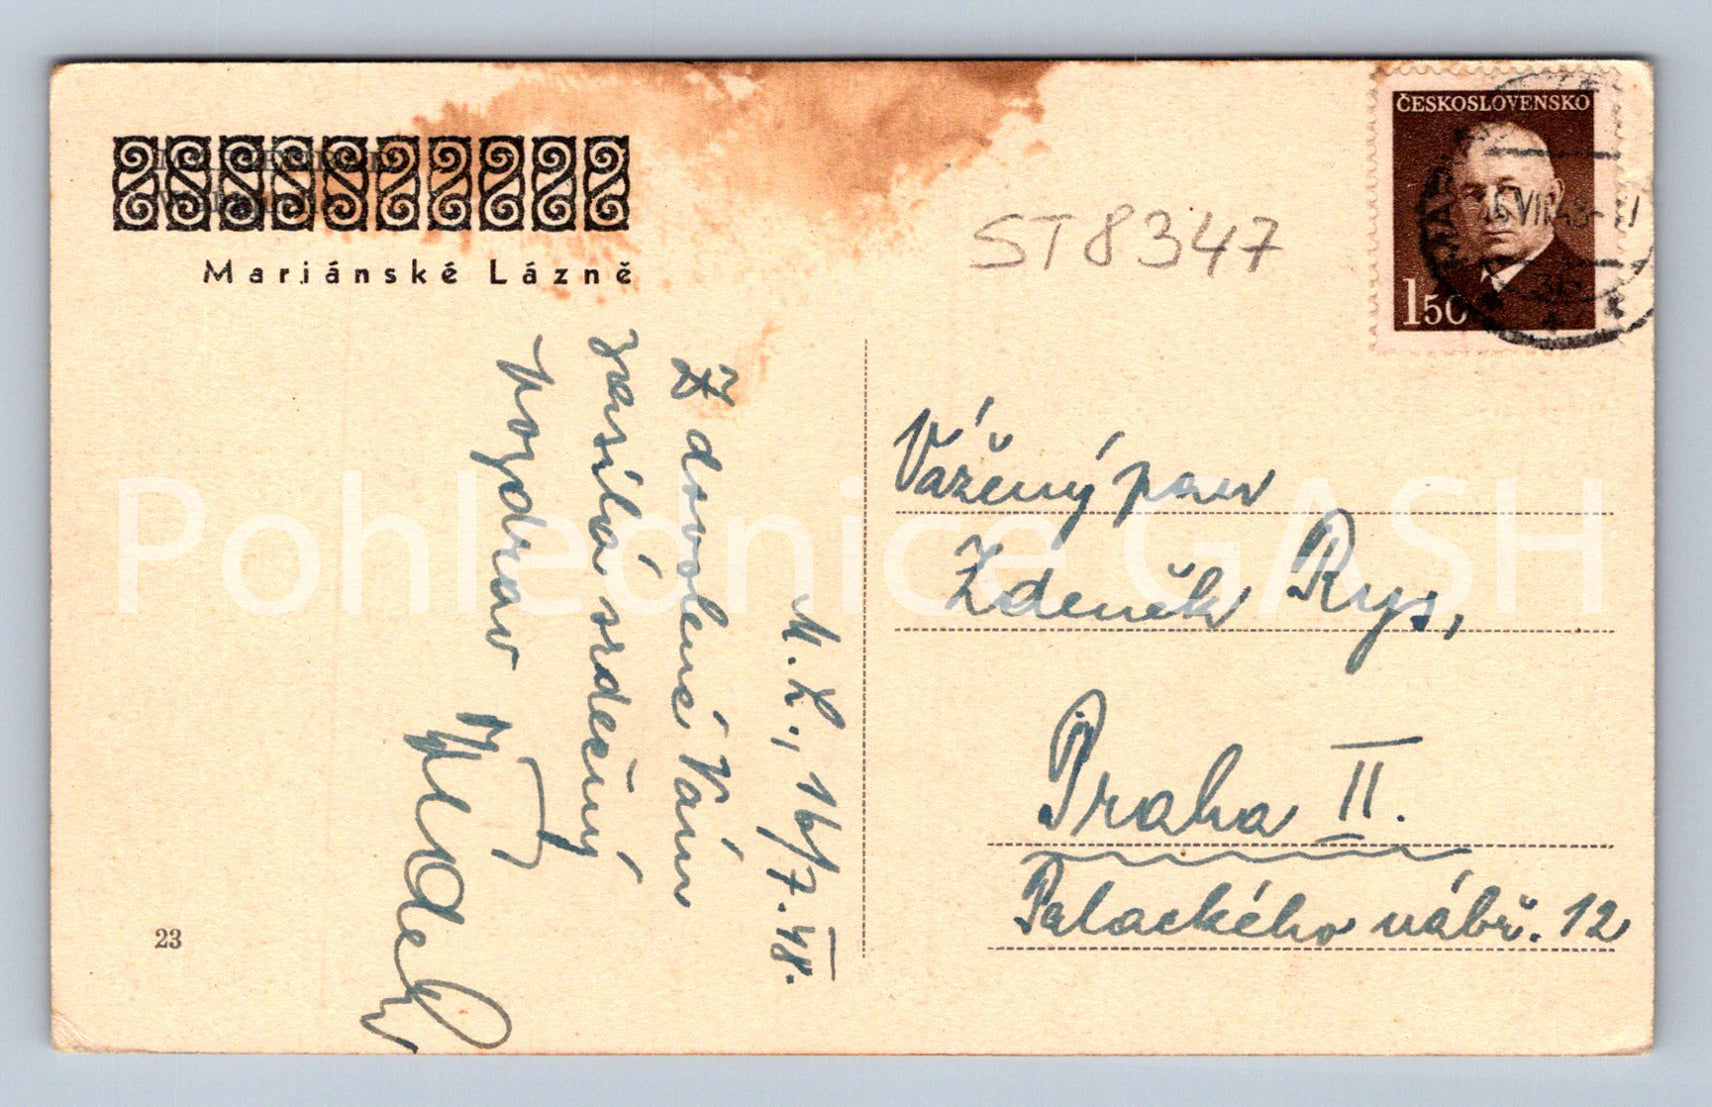 Mariánské Lázně
ST8347
ČESKOSLOVENSKO
150
M.L., 16/7.48.
Z dovolené Vám
zasílá srdečný
pozdrav
Vážený pan
Zdeněk Rys,
Praha II.
Palackého nábř. 12
23
Pohlednice GASH